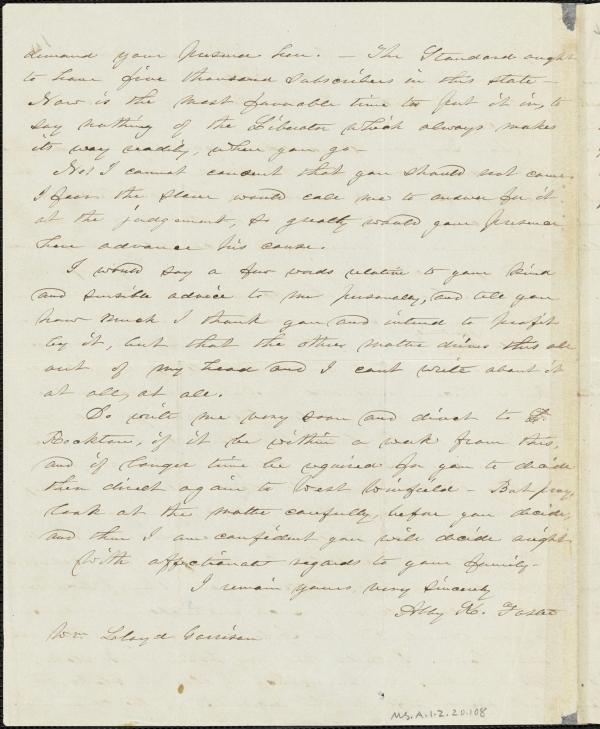 demand your presence here. — The Standard ought
to have five thousand subscribers in this state —
Now is the most favorable time to put it in, to
say nothing of the Liberator which always makes
its way readily, when you go —
No! I cannot consent that you should not come.
I fear the slave would call me to answer for it
at the judgement, so greatly would your presence
here advance his cause.
I would say a few words relative to your kind
and sensible advice to me personally, and tell you
how much I thank you and intend to profit
by it, but that the other matter drives this all
out of my head and I cant write about it
at all, at all.
Do write me very soon and direct to
Rockton, if it be within a week from this,
and if longer time be required for you to decide
then direct again to West Winfield — But pray,
look at the matter carefully, before you decide,
and then I am confident you will decide aright.
With affectionate regards to your family —
I remain yours very sincerely
Abby K. Foster
Wm. Lloyd Garrison
MS.A.1.2.20.108